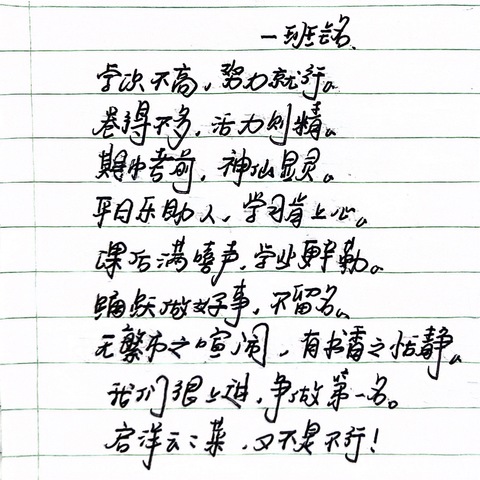 一班铭
学次不高，努力就行。
卷得不多，活力则精。
期中考前，神仙显灵。
平日乐助人，学习肯上心。
课后满嘻声，学业更辛勤。
踊跃做好事，不留名。
无繁市之喧闹，有书香之恬静。
我们很上进，争做第一名。
云：菜，又不是不行！